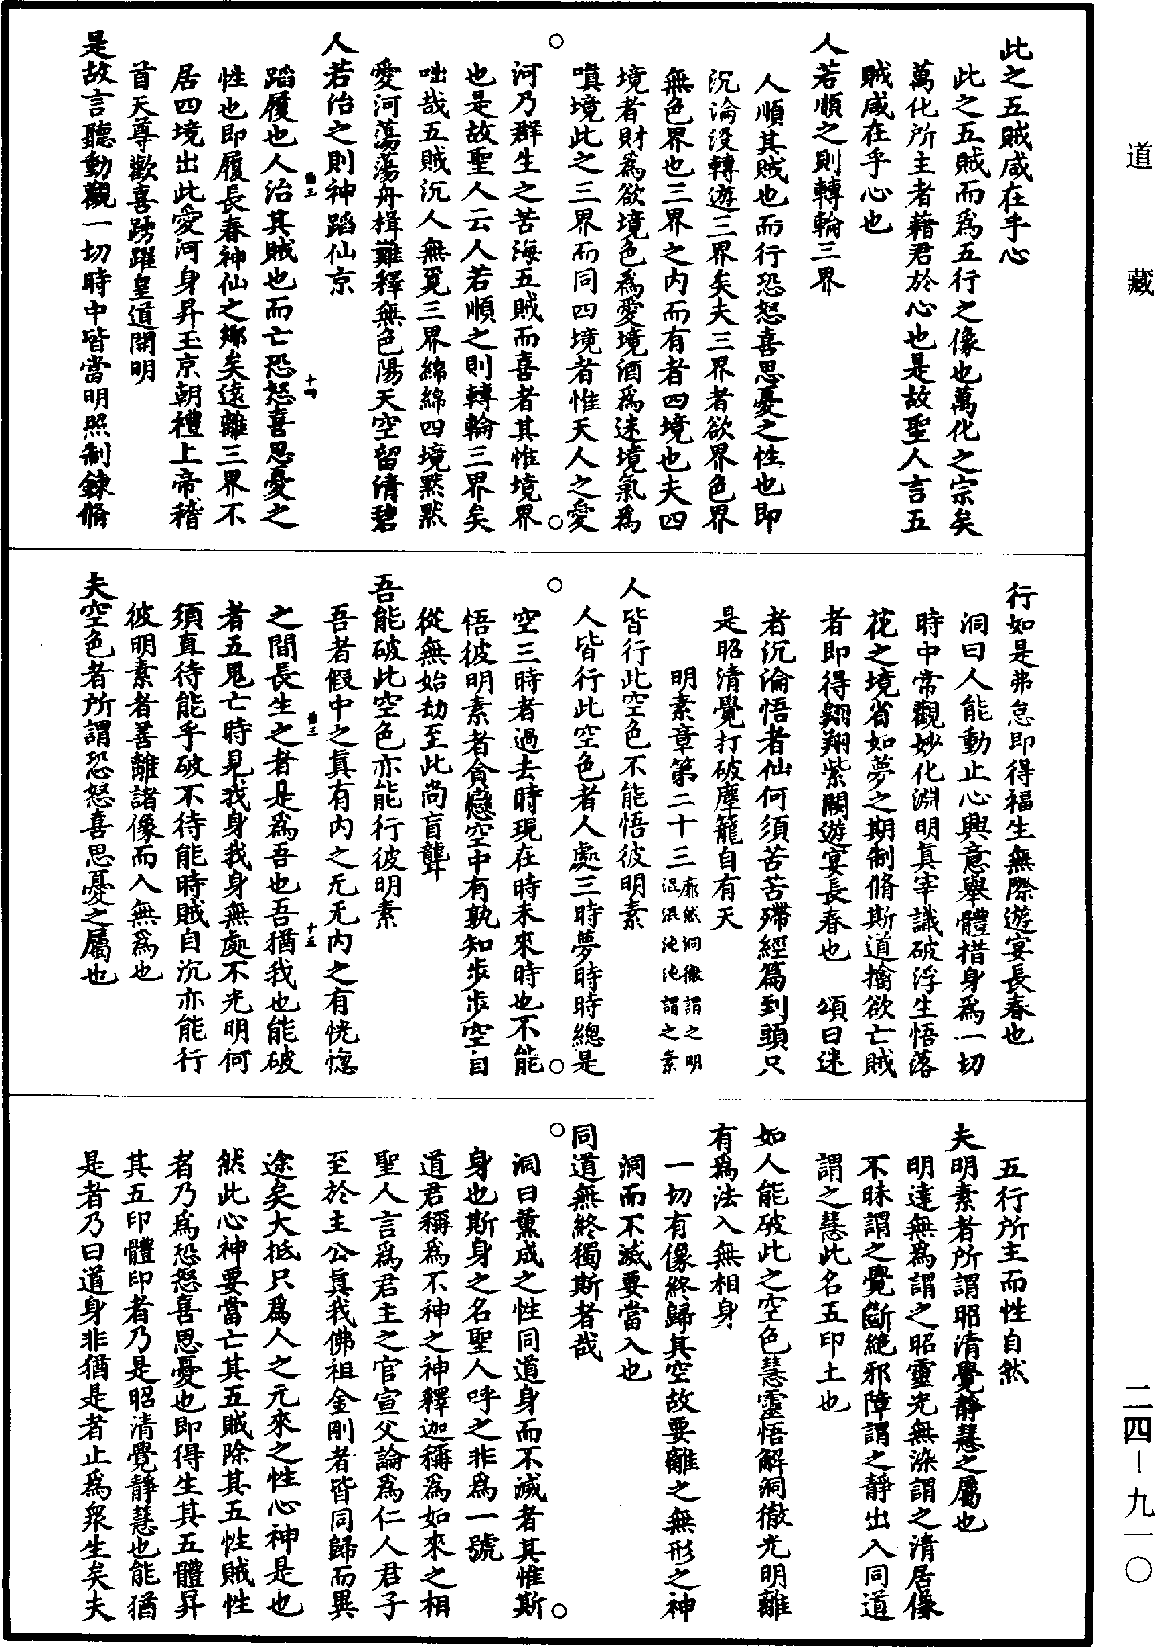 道藏
此之五賊咸在乎心
此之五賊而為五行之像也萬化之宗矣
萬化所主者藉君於心也是故聖人言五
賊咸在乎心也
人若順之則轉輪三界
人順其賊也而行恐怒喜思憂之性也即
沉淪沒轉遊三界矣夫三界者欲界色界
無色界也三界之內而有者四境也夫四
境者財為欲境色為愛境酒為迷境氣為
嗔境此之三界而同四境者惟天人之愛
河乃群生之苦海五賊而喜者其惟境界
也是故聖人云人若順之則轉輪三界矣
咄哉五賊沉人無覓三界綿綿四境默默
愛河蕩蕩舟楫難釋無色陽天空留清碧
人若治之則神蹈仙京
蹈履也人治其賊也而亡恐怒喜思憂之
性也即履長春神仙之鄉矣遠離三界不
居四境出此愛河身昇玉京朝禮上帝稽
首天尊歡喜踴躍皇道開明
是故言聽動觀一切時中皆當明照制鍊脩
十四
行如是弗怠即得福生無際遊宴長春也
洞曰人能動止心興意舉體措身為一切
時中常觀妙化淵明真宰識破浮生悟落
花之境省如夢之期制脩斯道擒欲亡賊
者即得翱翔紫闕遊宴長春也　頌曰迷
者沉淪悟者仙何須苦苦殢經篇到頭只
是昭清覺打破塵籠自有天
明素章第二十三廓然洞徹謂之明混混沌沌謂之素
人皆行此空色不能悟彼明素
人皆行此空色者人處三時夢時時總是
空三時者過去時現在時未來時也不能
悟彼明素者貪戀空中有孰知步步空自
從無始劫至此尚盲聾
吾能破此空色亦能行彼明素
吾者假中之真有內之无无內之有恍惚
之間長生之者是為吾也吾猶我也能破
者五鬼亡時見我身我身無處不光明何
須直待能乎破不待能時賊自沉亦能行
彼明素者善離諸像而入無為也
夫空色者所謂恐怒喜思憂之屬也
十五
五行所主而性自然
夫明素者所謂昭清覺靜慧之屬也
明達無為謂之昭靈光無染謂之清居像
不昧謂之覺斷絕邪障謂之靜出入同道
謂之慧此名五印土也
如人能破此之空色慧靈悟解洞徹光明離
有為法入無相身
一切有像終歸其空故要離之無形之神
洞而不滅要當入也
同道無終獨斯者哉
洞曰薰成之性同道身而不滅者其惟斯
身也斯身之名聖人呼之非為一號
道君稱為不神之神釋迦稱為如來之相
聖人言為君主之官宣父論為仁人君子
至於主公真我佛祖金剛者皆同歸而異
途矣大抵只為人之元來之性心神是也
然此心神要當亡其五賊除其五性賊性
者乃為恐怒喜思憂也即得生其五體昇
其五印體印者乃是昭清覺靜慧也能猶
是者乃曰道身非猶是者止為眾生矣夫
二四—九一〇